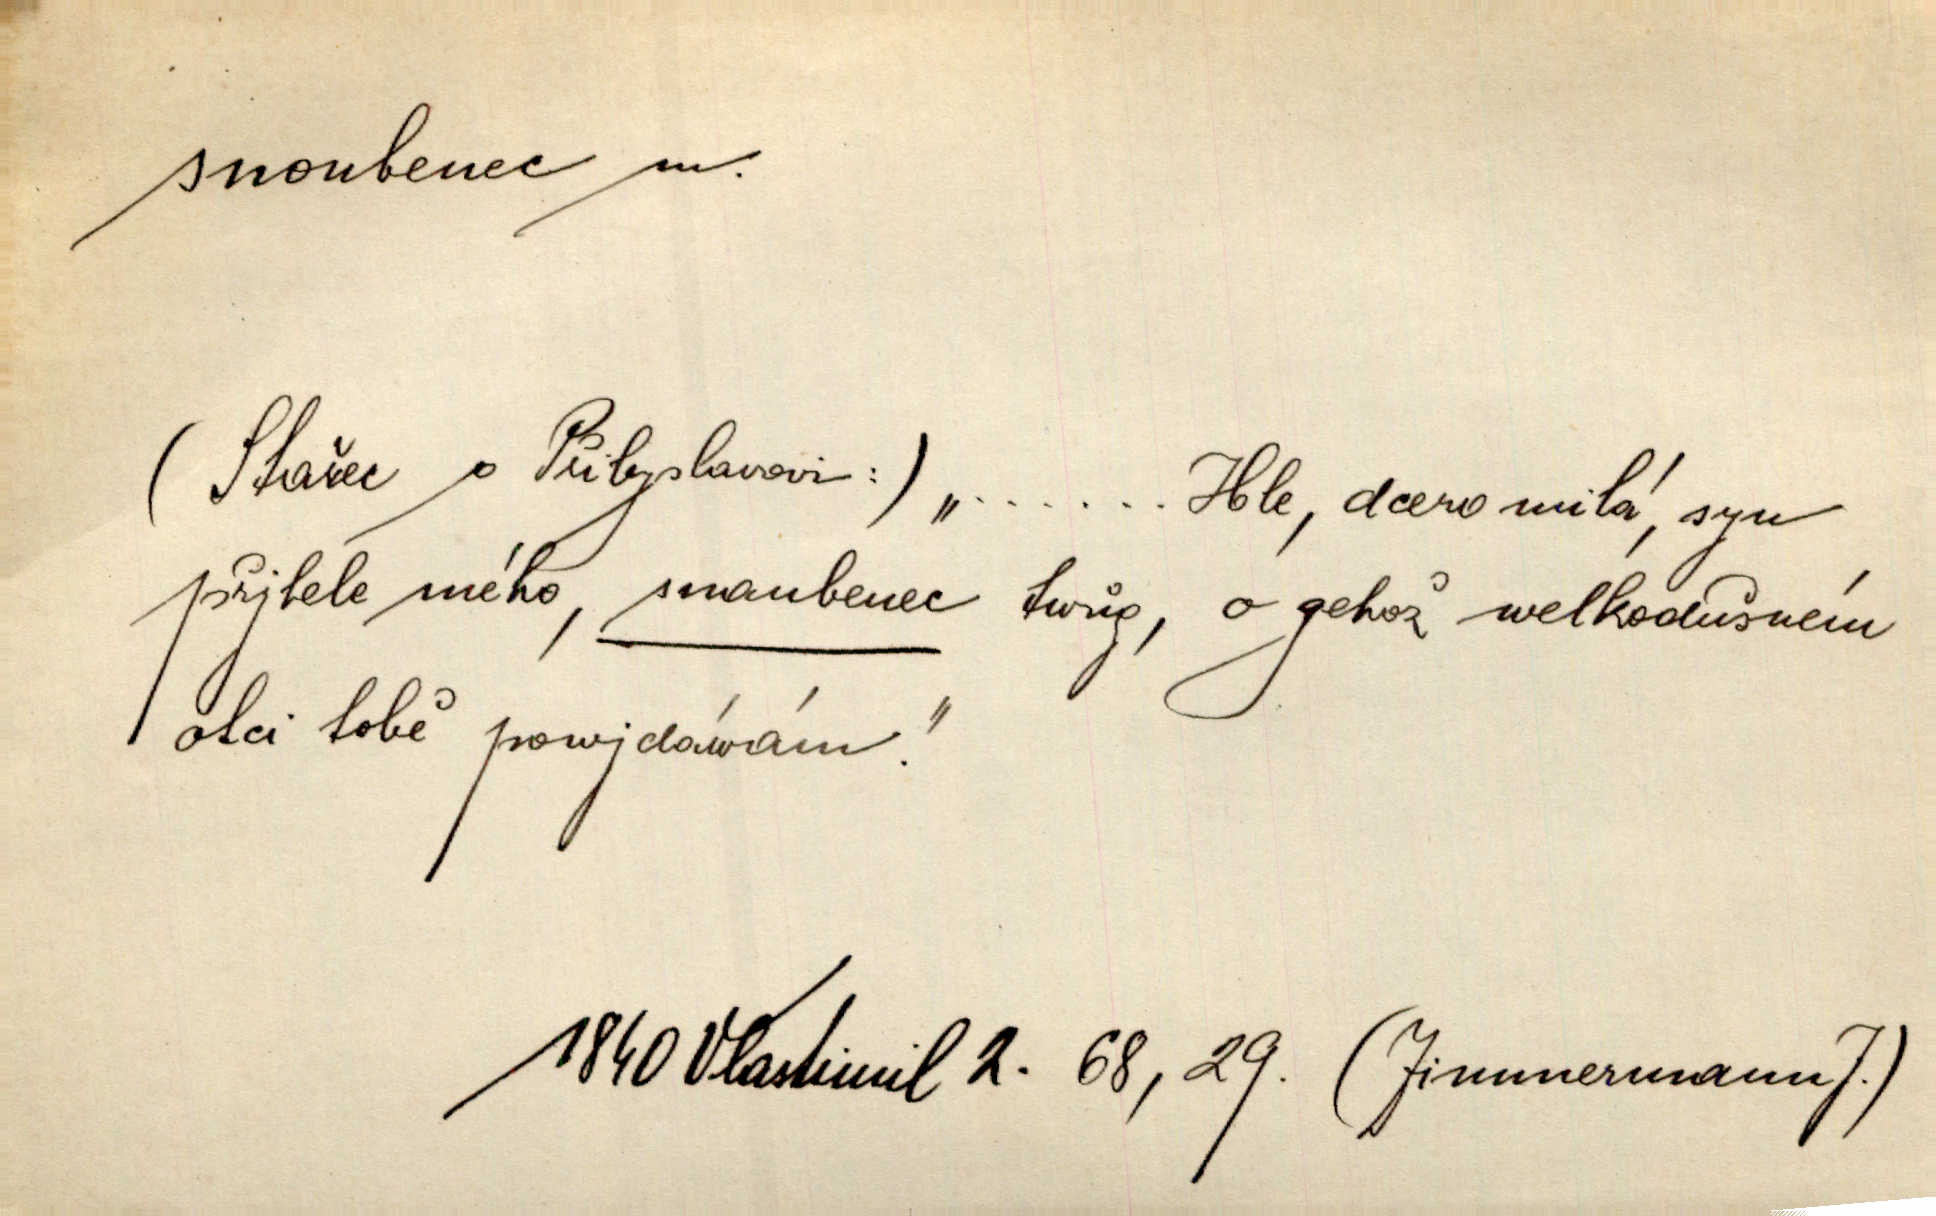 snoubenec m.
(Stařec o Přibyslavovi:) „....... Hle, dcero milá, syn
přjtele mého, snaubenec twůg, o gehož welkodušném
otci tobě powjdáwám."
1840 Vlastimil 2. 68, 29. (Zimmermann J.)